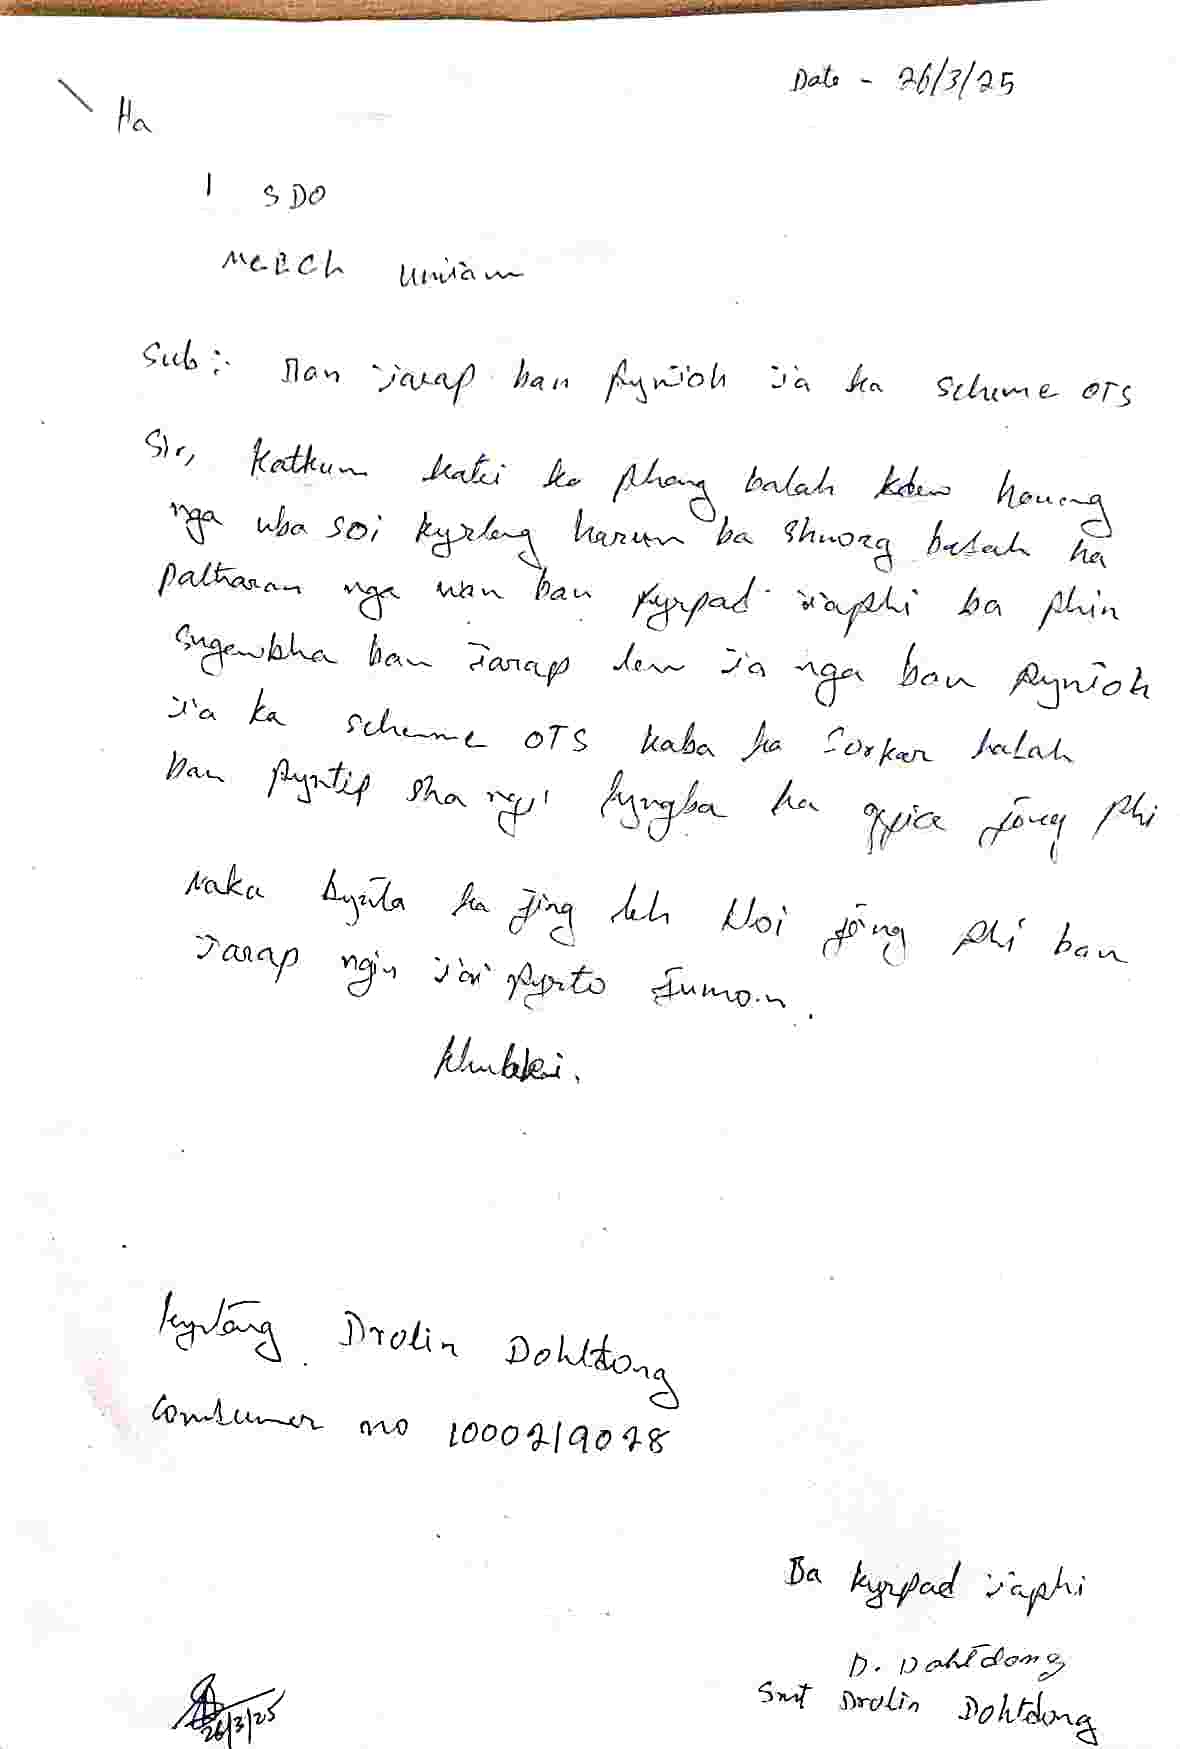 Date - 26/3/25
Ha
I SDO
MeECL Umiam
Sub:- Ban iarap ban pynïoh ïa ka scheme OTS
Sir, Katkum katei ka phang balah kdew haneng
nga uba soi kyrteng harum ba shong basah ha
Patharan nga wan ban kyrpad ïaphi ba phin
sngewbha ban ïarap lem ïa nga ban pynïoh
ïa ka scheme OTS kaba ka Sorkar kalah
ban pyntip sha ngi lyngba ka office jong phi
Naka bynta ka jing leh khoi jong phi ban
ïarap ngin ïai pyrto Juman.
Khublei.
Kyrteng Drolin Dohtdong
Consumer no 1000219028
Ba kyrpad ïaphi
D. Dohtdong
Smt Drolin Dohtdong
26/3/25